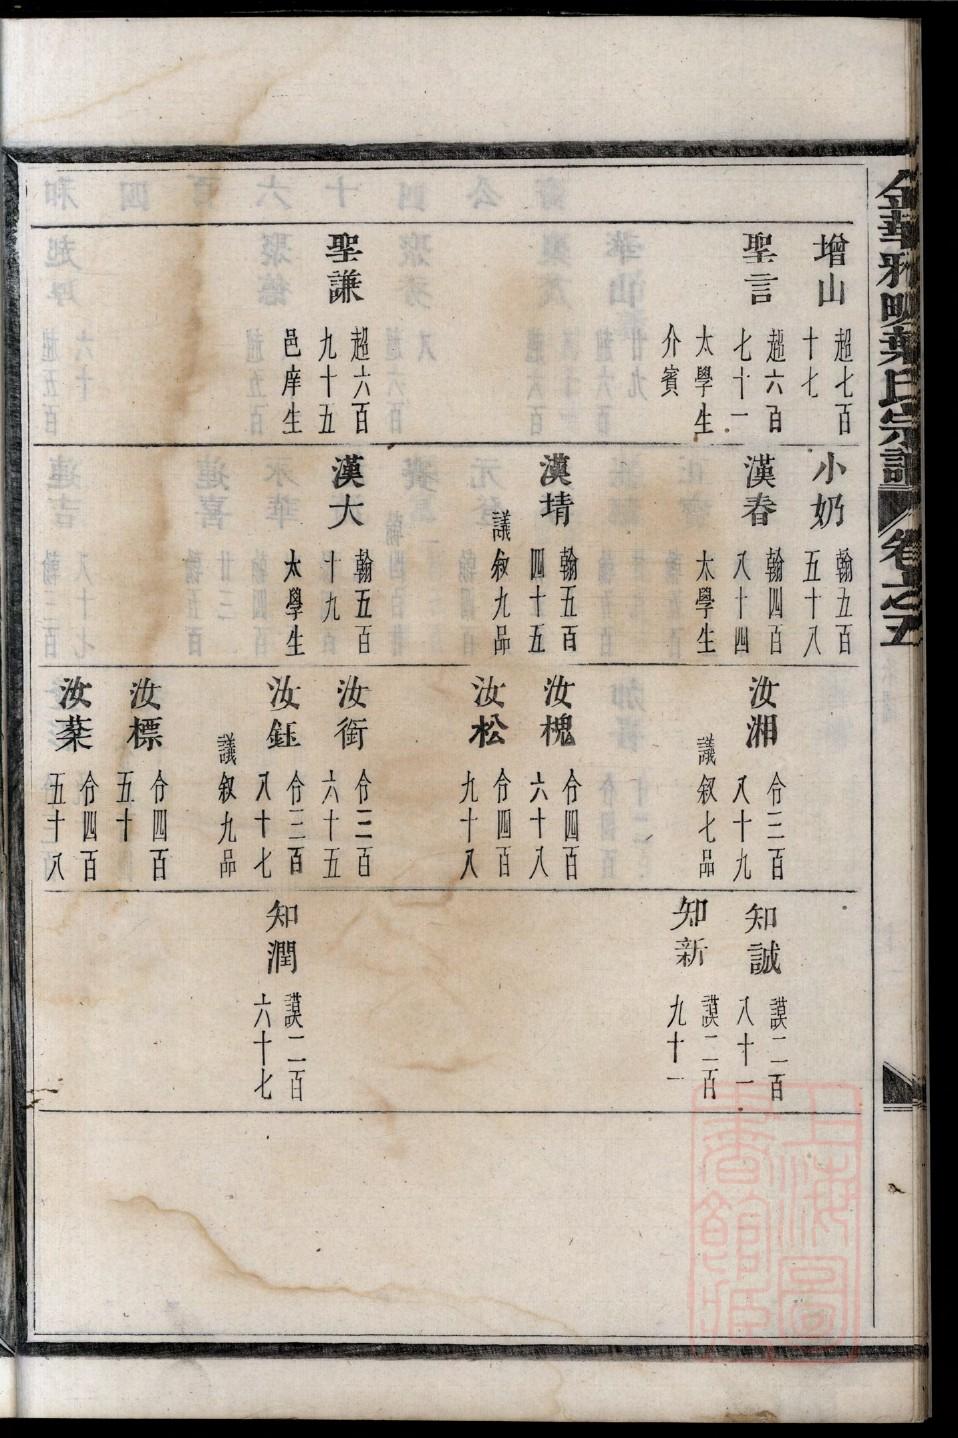 金華雅畈葉氏宗譜 卷之五
增山 超七百十七
聖言 超六百七十一 太學生 介賓
聖謙 超六百九十五 邑庠生
小奶 翰五百五十八
漢春 翰四百八十四 太學生
漢堉 翰五百四十五 議敘九品
漢大 翰五百十九 太學生
汝湘 令三百八十九 議叙七品
汝槐 令四百六十八
汝松 令四百九十八
汝衡 令三百六十五
汝鈺 令三百八十七 議叙九品
汝標 令四百五十
汝棻 令四百五十八
知誠 謨二百八十一
知新 謨二百九十一
知潤 謨二百六十七
上海圖書館藏